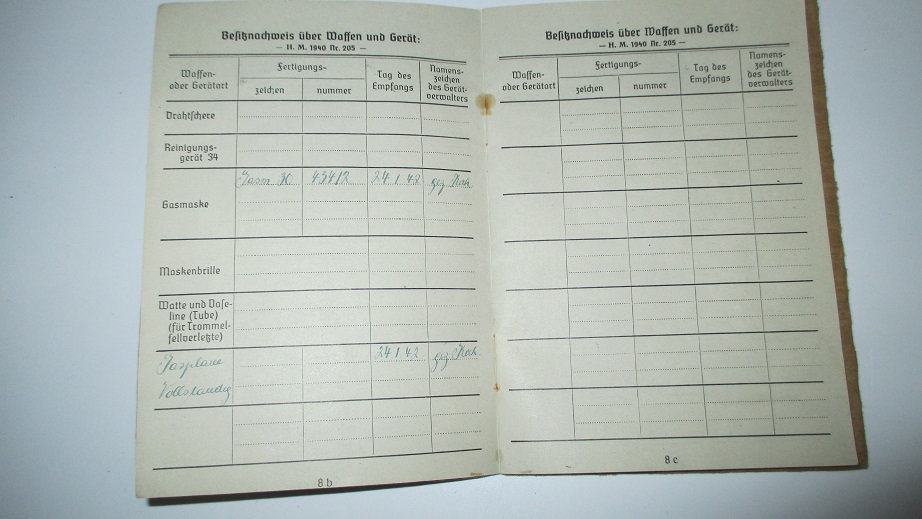 Besitznachweis über Waffen und Gerät:
— H. M. 1940 Nr. 205 —
Waffen-
oder Gerätart
Fertigungs-
zeichen
nummer
Tag des
Empfangs
Namens-
zeichen
des Gerät-
verwalters
Drahtschere
Reinigungs-
gerät 34
Gasmaske
30
24 1 42
gez Koch
Maskenbrille
Watte und Vase-
line (Tube)
(für Trommel-
fellverletzte)
Gasplane
24 1 42
gez Koch
Vollständig
8 b
Besitznachweis über Waffen und Gerät:
— H. M. 1940 Nr. 205 —
Waffen-
oder Gerätart
Fertigungs-
zeichen
nummer
Tag des
Empfangs
Namens-
zeichen
des Gerät-
verwalters
8 c